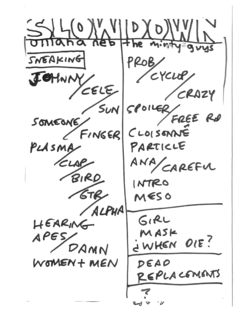 SLOWDOWN
omaha neb the minty guys
SNEAKING
JOHNNY
/CELE
/SUN
SOMEONE/
FINGER
PLASMA/
CLAP/
BIRD/
GTR/
ALPHA
HEARING
APES/
DAMN
WOMEN + MEN
PROB/
CYCLOP/
CRAZY
SPOILER/
FREE RD
CLOISONNÉ
PARTICLE
ANA/
CAREFUL
INTRO
MESO
GIRL
MASK
¿WHEN DIE?
DEAD
REPLACEMENTS
?